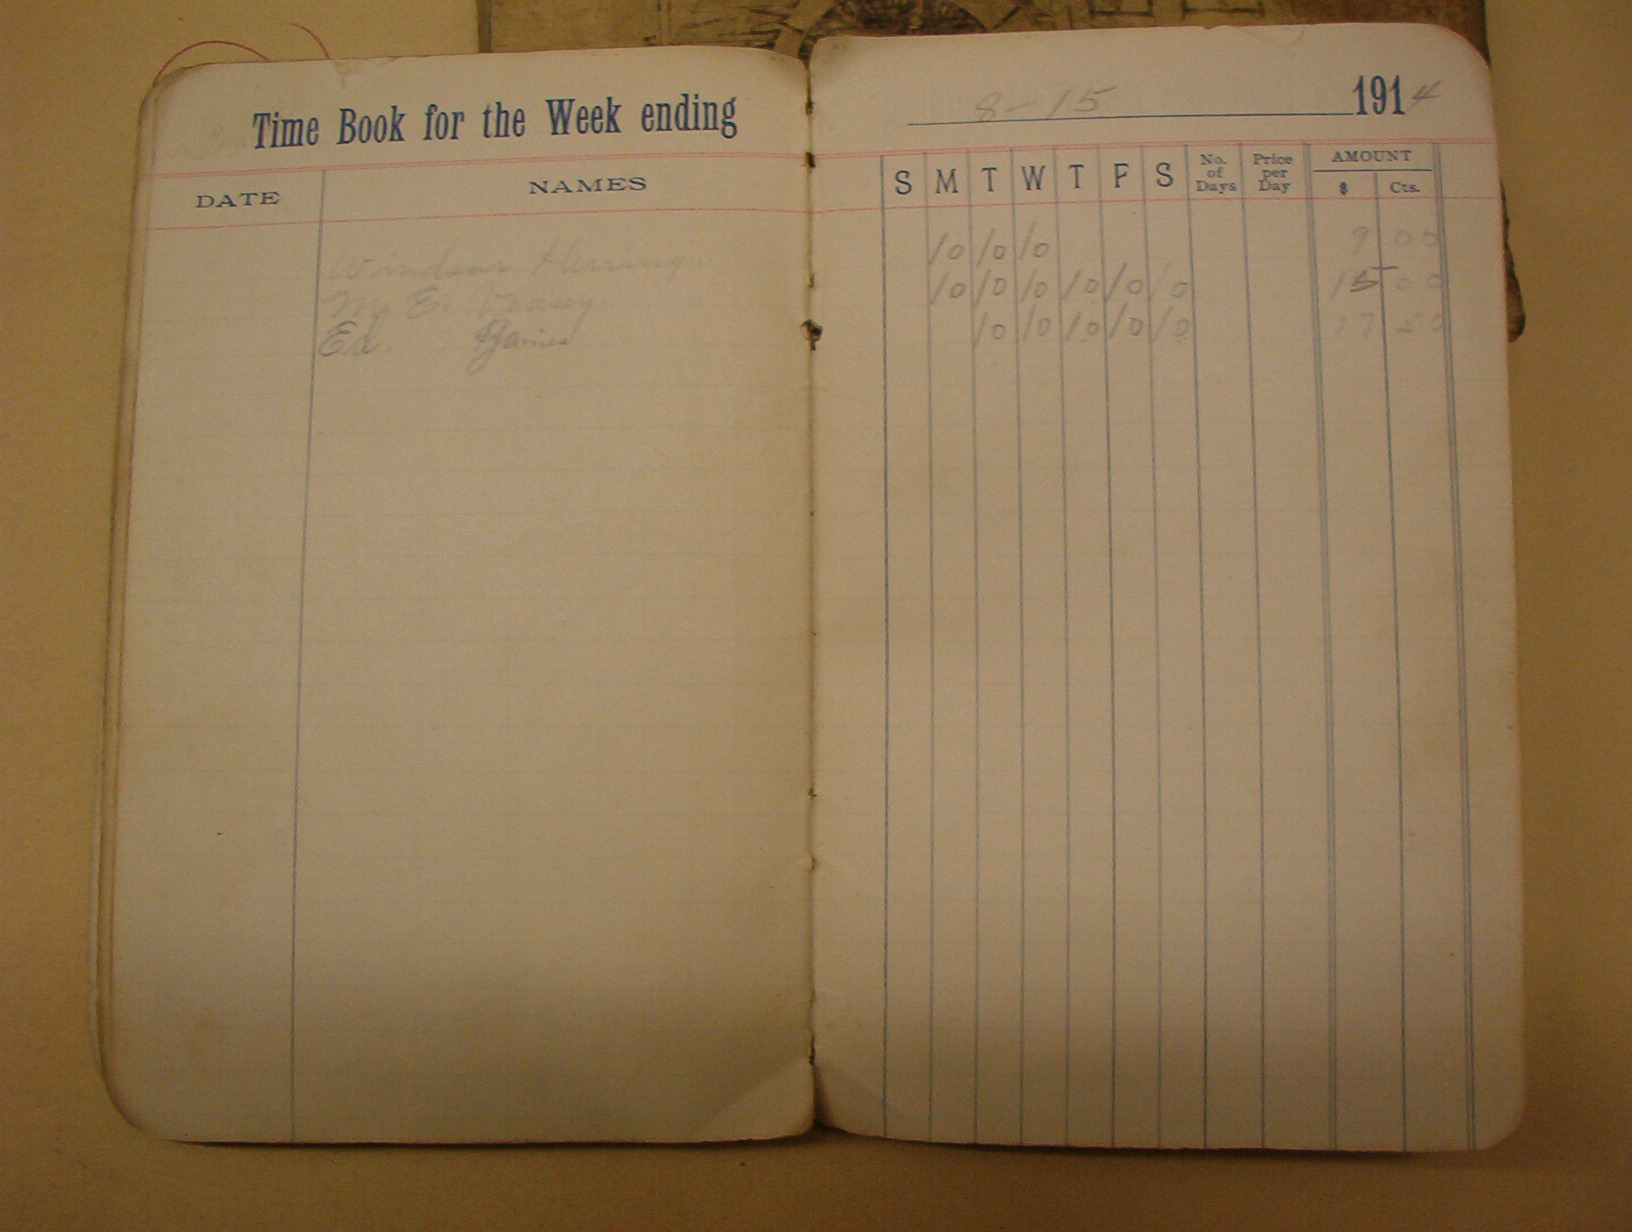 Time Book for the Week ending 8-15 1914
DATE NAMES S M T W T F S No. of Days Price per Day AMOUNT $ Cts.
Windsor Herring. 10 10 10 9 00
E. 10 10 10 10 10 10 15 00
Ed. 10 10 10 10 10 17 50